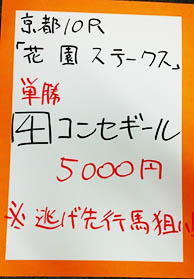 京都10R
「花園ステークス」
単勝
4 コンセギール
5000円
※逃げ先行馬狙い!